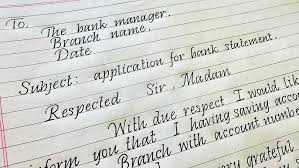 To,
The bank manager.
Branch name.
Date
Subject: application for bank statement.
Respected Sir, Madam
With due respect I would like
inform you that I having saving accou
Branch with account number
very grateful